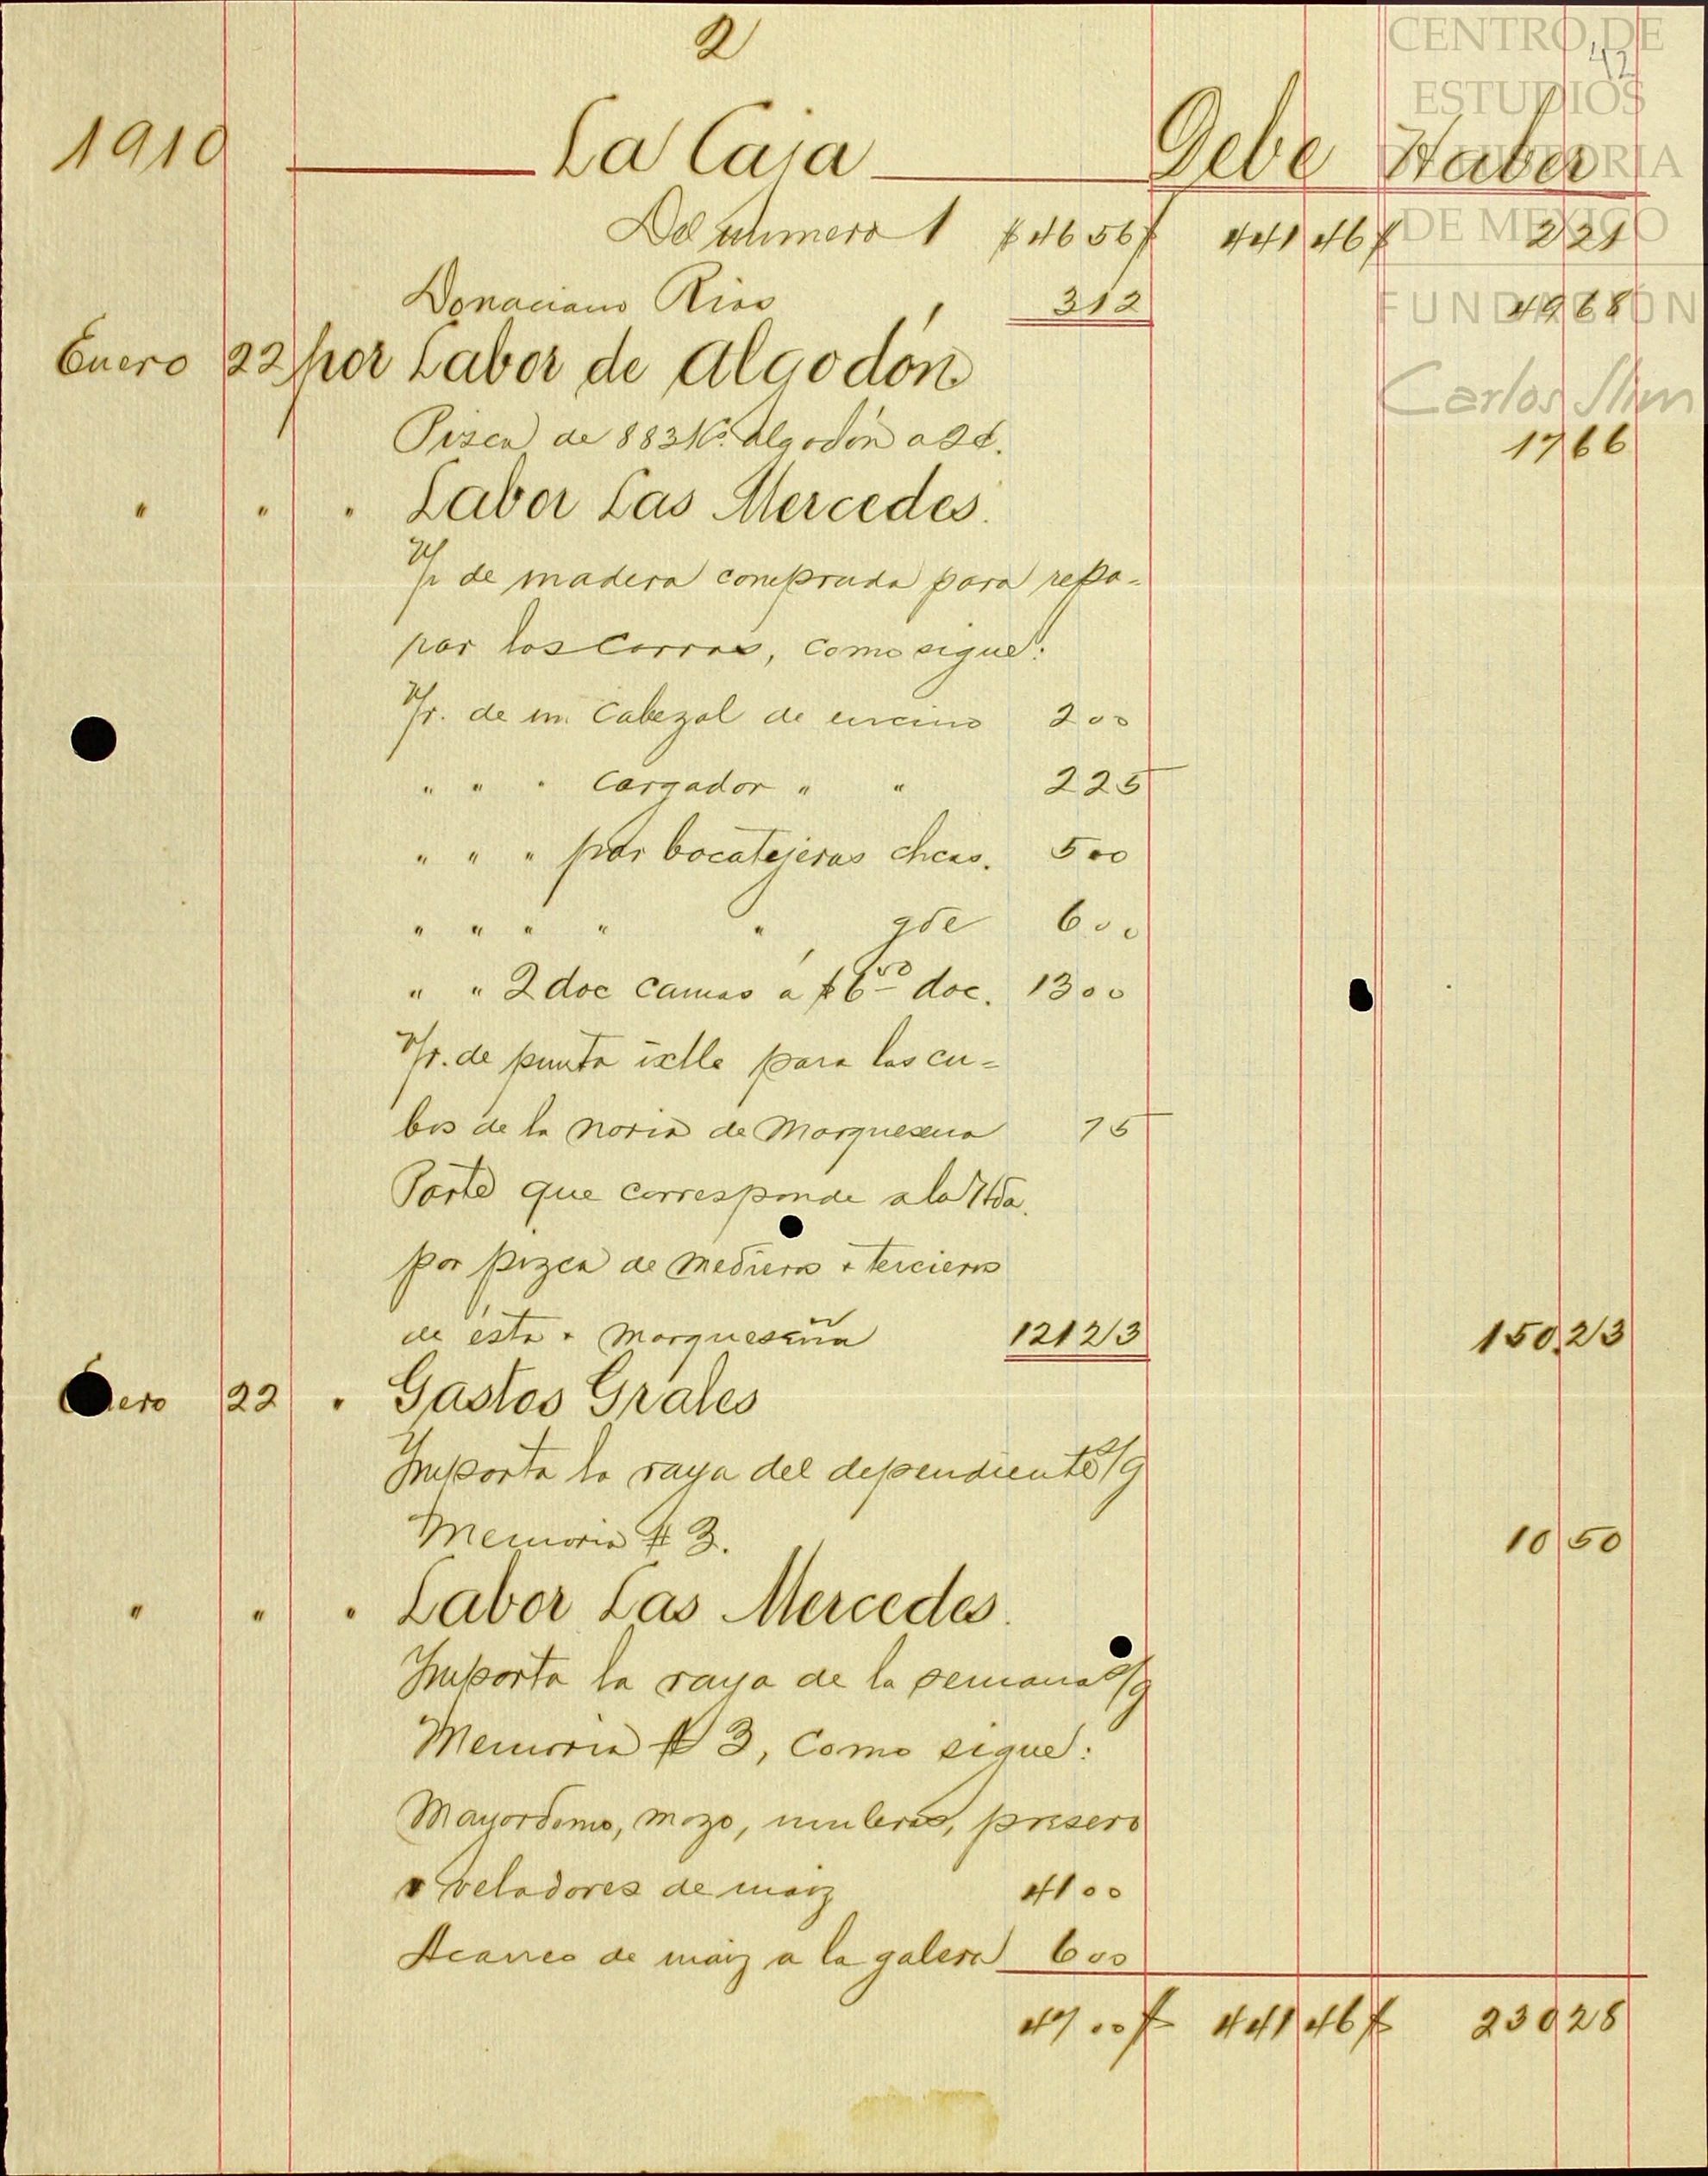 2
42
1910 La Caja Debe Haber
Del numero 1 $ 46 56 $ 441 46 $ 2 21
Donaciano Rios 3 12 49 68
Enero 22 por Labor de Algodón
Pisca de 883 Ks. algodón a 2¢. 17 66
" " " Labor Las Mercedes.
V/r de madera comprada para repa=
rar los carros, como sigue:
V/r. de un cabezal de encino 2 00
" " " cargador " " 2 25
" " " par bocatejeras chcas. 5 00
" " " " " gde 6 00
" " 2 doc camas a $6 50 doc. 13 00
V/r. de punta ixtle para los cu=
bos de la noria de Marquesena 75
Parte que corresponde a la Hda.
por pizca de medieros y tercieros
de ésta y Marqueseña 121 23 150.23
Enero 22 " Gastos Grales
Importa la raya del dependiente s/g
Memoria # 3. 10 50
" " " Labor Las Mercedes.
Importa la raya de la semana s/g
Memoria # 3, como sigue:
Mayordomo, mozo, muleros, presero
y veladores de maiz 41 00
Acarreo de maiz a la galera 6 00
47 00 $ 441 46 $ 230 28
CENTRO DE
ESTUDIOS
DE HISTORIA
DE MÉXICO
FUNDACIÓN
Carlos Slim